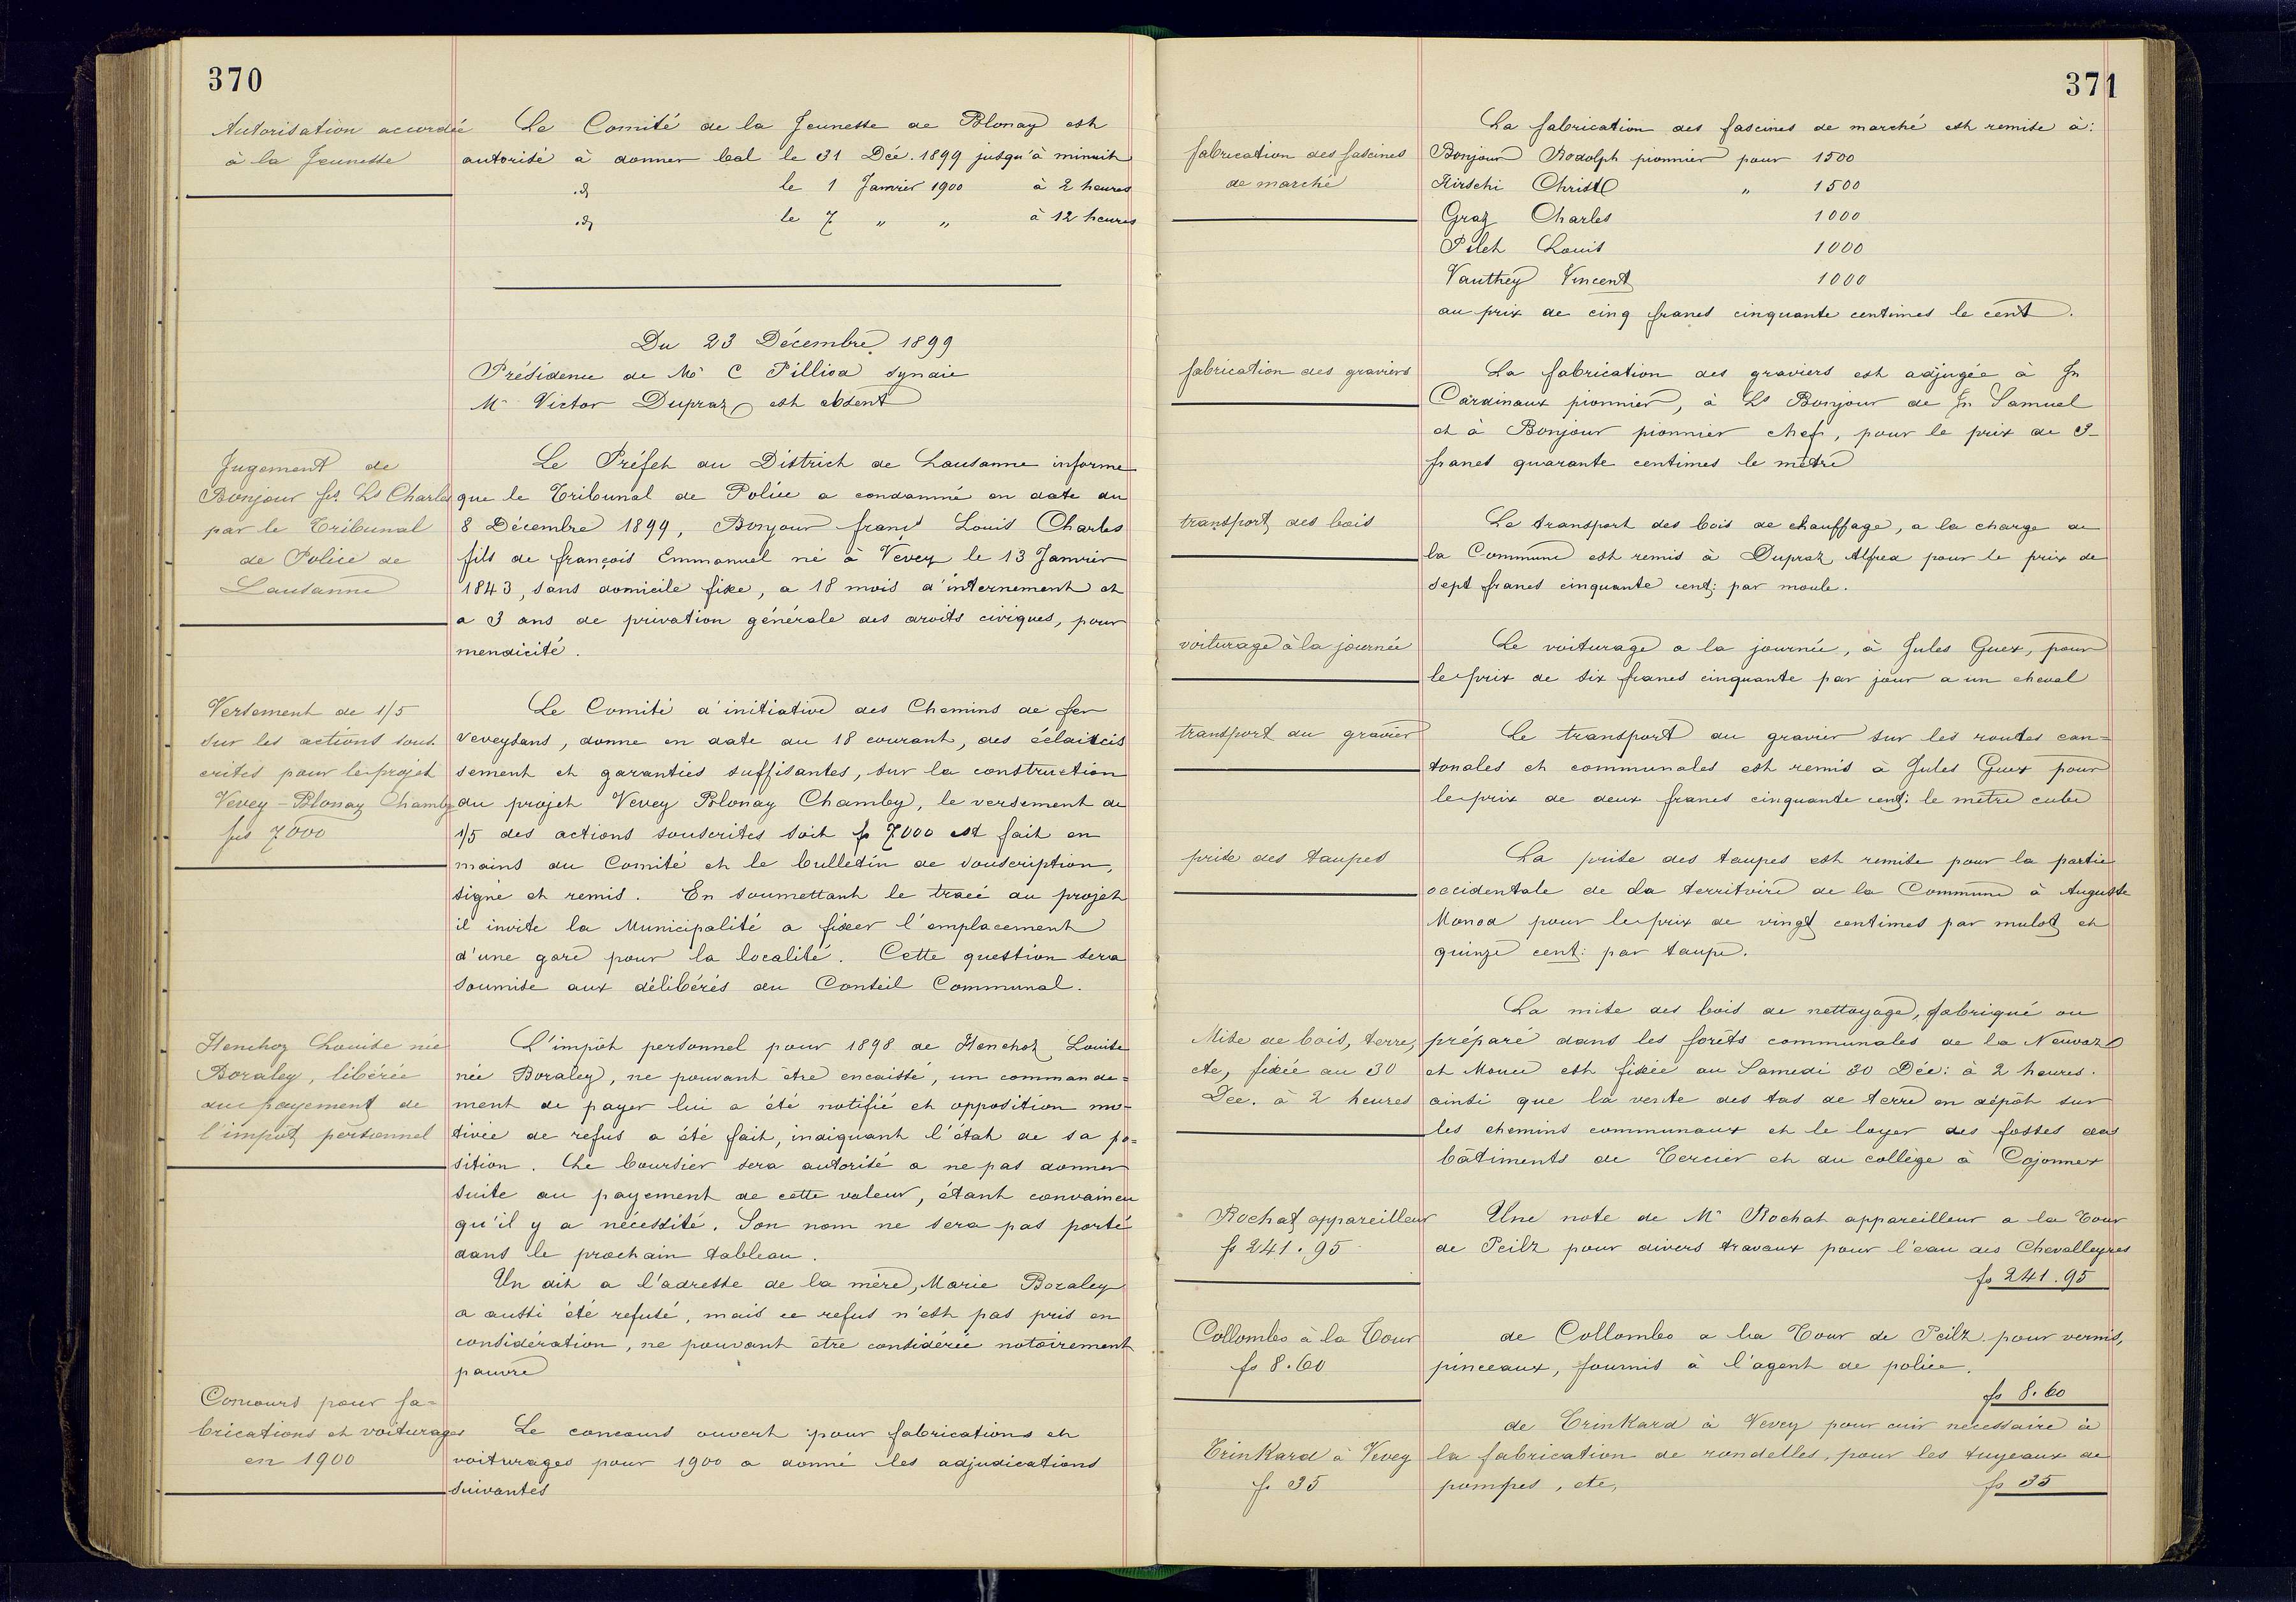 370
Autorisation accordée
à la Jeunesse
Le Comité de la Jeunesse de Blonay est
autorisé à donner bal le 31 Déc. 1899 jusqu'à minuit
id le 1 Janvier 1900 à 2 heures
id le 7 " " à 12 heures
Du 23 Décembre 1899
Présidence de Mr C Pilliod syndic
Mr Victor Dupraz est absent
Jugement de
Bonjour fçs Ls Charles
par le Tribunal
de Police de
Lausanne
Le Préfet du District de Lausanne informe
que le Tribunal de Police a condamné en date du
8 Décembre 1899, Bonjour françs Louis Charles
fils de françois Emmanuel né à Vevey le 13 Janvier
1843, sans domicile fixe, a 18 mois d'internement et
a 3 ans de privation générale des droits civiques, pour
mendicité.
Versement de 1/5
sur les actions sous-
crites pour le projet
Vevey-Blonay Chamby
frs 7000
Le Comité d'initiative des Chemins de fer
Veveysans, donne en date du 18 courant, des éclaircis
sement et garanties suffisantes, sur la construction
du projet Vevey Blonay Chamby, le versement de
1/5 des actions souscrites soit fr 7000 est fait en
mains du Comité et le bulletin de souscription,
signé et remis. En soumettant le tracé du projet
il invite la Municipalité a fixer l'emplacement
d'une gare pour la localité. Cette question sera
soumise aux délibérés du Conseil Communal.
Henchoz Louise née
Boraley, libérée
du payement de
l'impôt personnel
L'impôt personnel pour 1898 de Henchoz Louise
née Boraley, ne pouvant être encaissé, un commande=
ment de payer lui a été notifié et opposition mo-
tivée de refus a été fait, indiquant l'état de sa po=
sition. Le boursier sera autorisé a ne pas donner
suite au payement de cette valeur, étant convaincu
qu'il y a nécessité. Son nom ne sera pas porté
dans le prochain tableau.
Un dit a l'adresse de la mère, Marie Boraley
a aussi été refusé, mais ce refus n'est pas pris en
considération, ne pouvant être considérée notoirement
pauvre
Concours pour fa=
brications et voiturages
en 1900
Le concours ouvert pour fabrications et
voiturages pour 1900 a donné les adjudications
suivantes
371
fabrication des fascines
de marché
La fabrication des fascines de marché est remise à:
Bonjour Rodolph pionnier pour 1500
Hirschi Christ " 1500
Graz Charles 1000
Pilet Louis 1000
Vauthey Vincent 1000
au prix de cinq francs cinquante centimes le cent.
fabrication des graviers
La fabrication des graviers est adjugée à Jn
Cardinaux pionnier, à Ls Bonjour de Jn Samuel
et à Bonjour pionnier chef, pour le prix de 3-
francs quarante centimes le mètre
transport des bois
Le transport des bois de chauffage, a la charge de
la Commune est remis à Dupraz Alfred pour le prix de
sept francs cinquante cent: par moule.
voiturage à la journée
Le voiturage a la journée, à Jules Guex, pour
le prix de six francs cinquante par jour a un cheval
transport du gravier
Le transport du gravier sur les routes can=
tonales et communales est remis à Jules Guex pour
le prix de deux francs cinquante cent: le mètre cube
prise des taupes
La prise des taupes est remise pour la partie
occidentale de la territoire de la Commune à Auguste
Monod pour le prix de vingt centimes par mulot et
quinze cent: par taupe.
Mise de bois, terre,
etc, fixée au 30
Déc. à 2 heures
La mise des bois de nettoyage, fabriqué ou
préparé dans les forêts communales de la Neuvaz
et Mouu est fixée au Samedi 30 Déc: à 2 heures.
ainsi que la vente des tas de terre en dépôt sur
les chemins communaux et le loyer des fosses des
bâtiments de Tercier et du collège à Cojonnex
Rochat appareilleur
fr 241.95
Une note de Mr Rochat appareilleur a la Tour
de Peilz pour divers travaux pour l'eau des Chevalleyres
fr 241.95
Collombo à la Tour
fr 8.60
de Collombo a la Tour de Peilz pour vernis,
pinceaux, fournis à l'agent de police.
fr 8.60
Trinkard à Vevey
fr 35
de Trinkard à Vevey pour cuir nécessaire à
la fabrication de rondelles, pour les tuyeaux de
pompes, etc,
fr 35